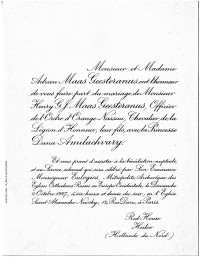 Monsieur et Madame
Adrien Maas Geesteranus, ont l'honneur
de vous faire part du mariage de Monsieur
Henry G. J. Maas Geesteranus, Officier
de l'Ordre d'Orange Nassau, Chevalier de la
Légion d'Honneur, leur fils, avec la Princesse
Dana Amilachvary.
Et vous prient d'assister à la bénédiction nuptiale
et au Sacre nuptial qui sera célébré par Son Eminence
Monseigneur Euloge, Métropolite Archevêque des
Eglises Orthodoxes Russes en Europe Occidentale, le Dimanche
Octobre 1927, à heures et demie du soir, en l'Eglise
Saint Alexandre Newsky, 12, Rue Daru, à Paris.
Red House
Heiloo
(Hollande du Nord)